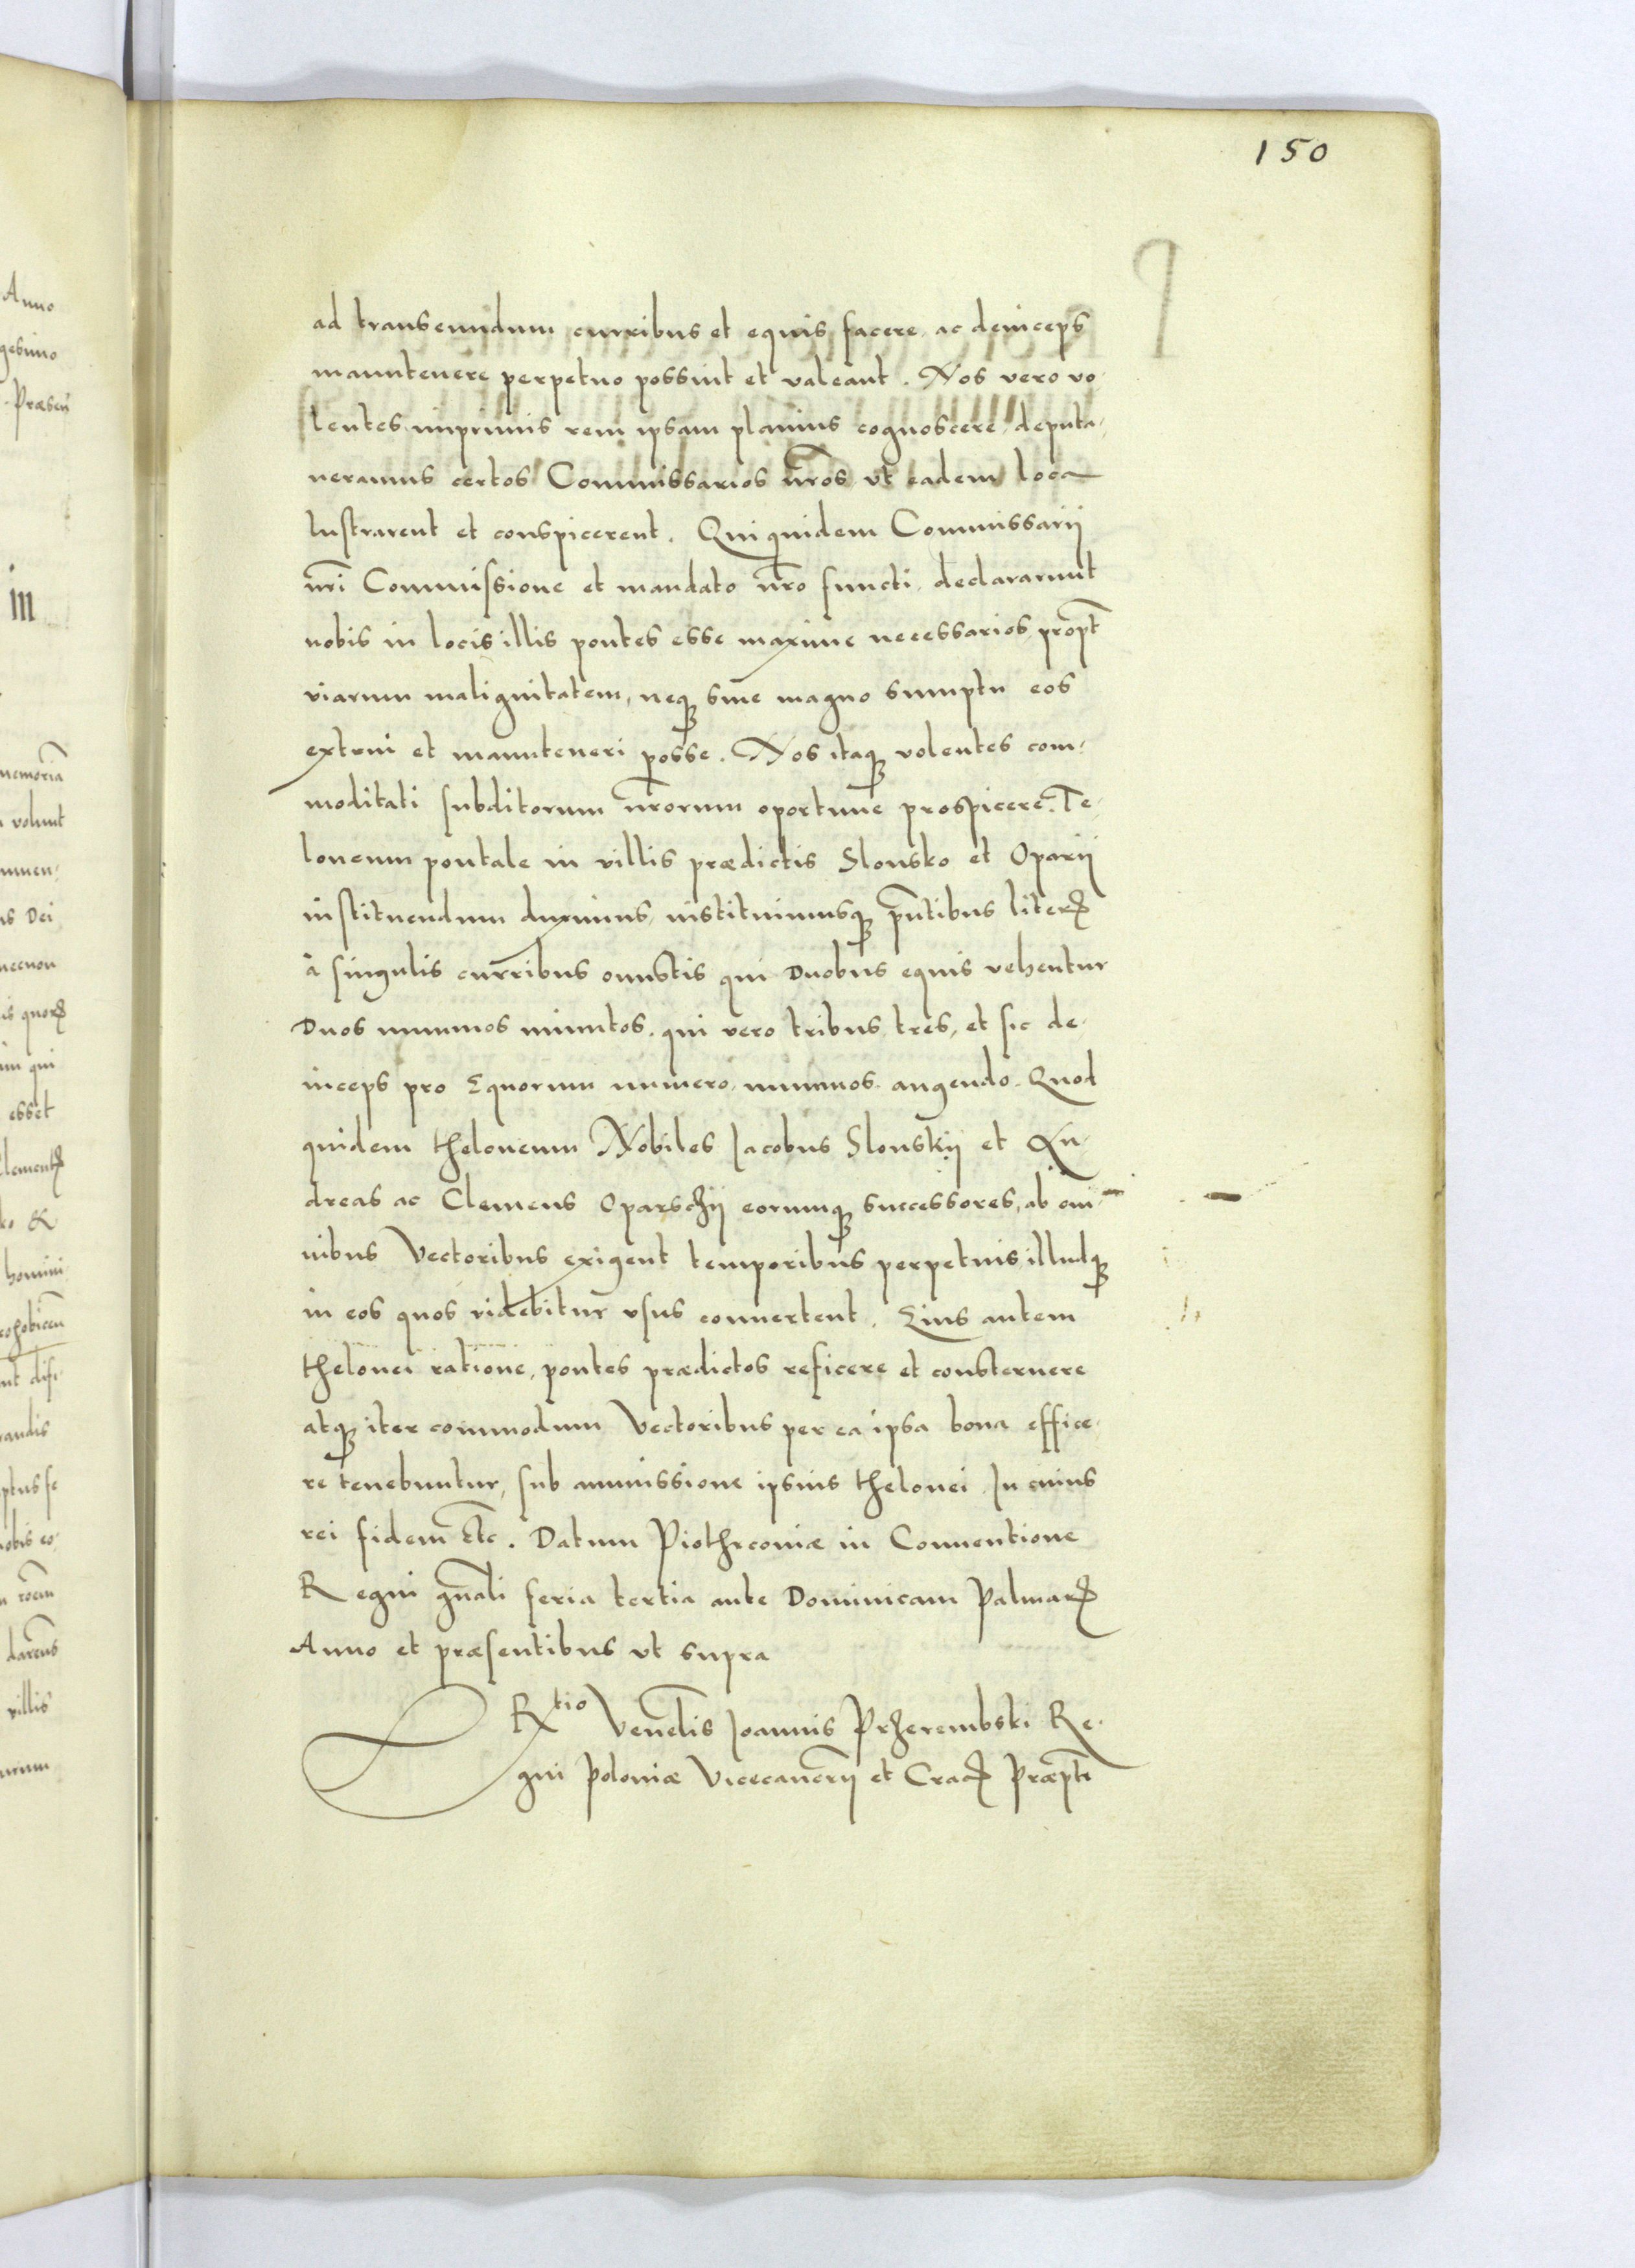 150
ad transeundum curribus et equis facere ac deinceps
manutenere perpetuo possint et valeant. Nos vero vo-
lentes imprimis rem ipsam planius cognoscere deputa-
veramus certos Commissarios nr̃os vt eadem loca
lustrarent et conspicerent. Qui quidem Commissarij
nr̃i Commissione et mandato nr̃o functi declararunt
nobis in locis illis pontes esse maxime necessarios propt̃
viarum malignitatem, neqꝫ sine magno sumptu eos
extrui et manuteneri posse. Nos itaqꝫ volentes com-
moditati subditorum nr̃orum oportune prospicere. Te-
loneum pontale in villis prædictis Slonsko et Oparij
instituendum duximus, instituimusqꝫ pñtibus literꝭ
à singulis curribus onustis qui Duobus equis vehentur
Duos nummos minutos. qui vero tribus tres, et sic de-
inceps pro Equorum numero nummos augendo. Quod
quidem theloneum Nobiles Jacobus Slonskij et An-
dreas ac Clemens Oparschij eorumqꝫ successores, ab om-
nibus Vectoribus exigent temporibus perpetuis illudqꝫ
in eos quos videbitur vsus conuertent. Eius autem
thelonei ratione, pontes prædictos reficere et consternere
atqꝫ iter commodum Vectoribus per ea ipsa bona effice-
re tenebuntur, sub ammissione ipsius thelonei. In cuius
rei fidem Etc. Datum Piothrconiæ in Conuentione
Regni gñali feria tertia ante Dominicam Palmarꝭ
Anno et præsentibus vt supra
Rtio Veneñlis Joannis Przerembski Re-
gni Poloniæ Vicecancrij et Cracꝭ Præptı
Anno
gesimo
Præsen
in
memoriã
volunt
Dei
necnon
qui
esset
homini
villis